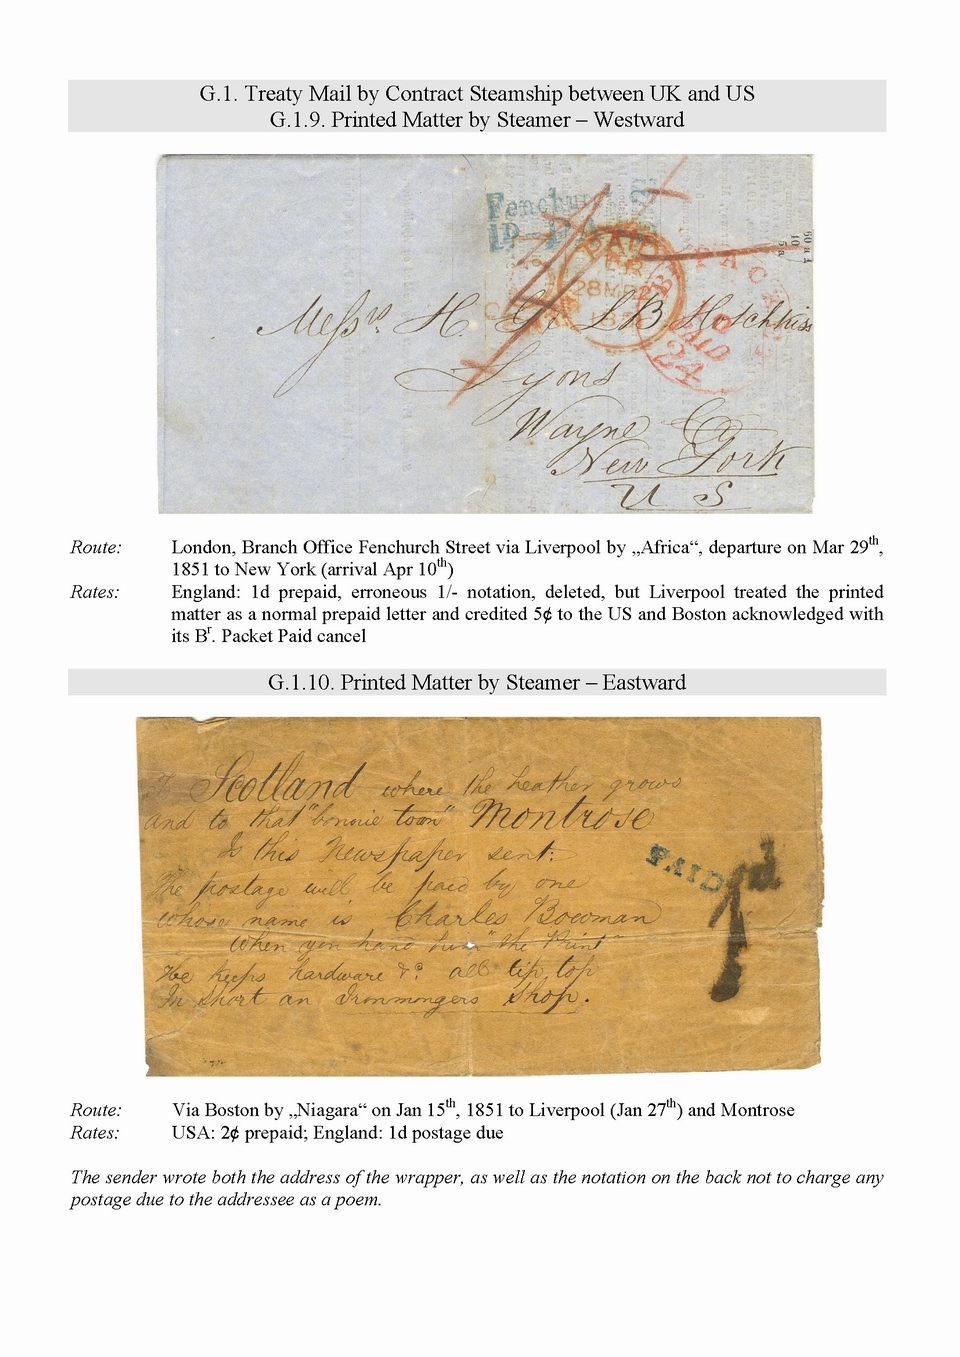 G.1. Treaty Mail by Contract Steamship between UK and US
G.1.9. Printed Matter by Steamer – Westward
Fenchurch St
1D PAID
PAID
28 MR 28
PACKET
Br
PAID
24
50 a 1
10
5 a
Messrs H. G & L B Hotchkiss
Lyons
Wayne Co
New York
U S
Route: London, Branch Office Fenchurch Street via Liverpool by „Africa“, departure on Mar 29th,
1851 to New York (arrival Apr 10th)
Rates: England: 1d prepaid, erroneous 1/- notation, deleted, but Liverpool treated the printed
matter as a normal prepaid letter and credited 5¢ to the US and Boston acknowledged with
its Br. Packet Paid cancel
G.1.10. Printed Matter by Steamer – Eastward
To Scotland where the heather grows
and to that "bonnie toon" Montrose
Is this Newspaper sent:
The postage will be paid by one
whose name is Charles Bowman
When you hand him "the Print"
He keeps hardware &c. all tip top
In short an Ironmongers Shop.
PAID
1d
Route: Via Boston by „Niagara“ on Jan 15th, 1851 to Liverpool (Jan 27th) and Montrose
Rates: USA: 2¢ prepaid; England: 1d postage due
The sender wrote both the address of the wrapper, as well as the notation on the back not to charge any
postage due to the addressee as a poem.